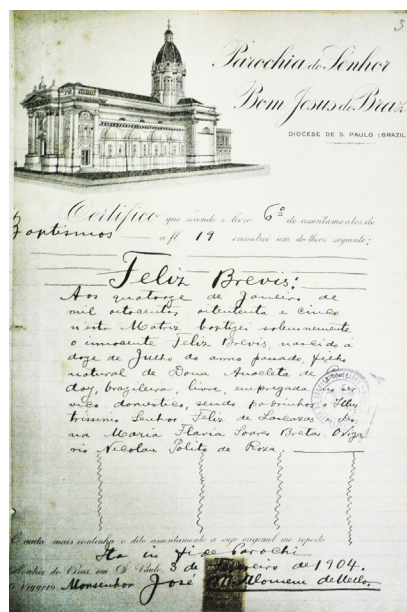 3
Parochia do Senhor
Bom Jesus do Braz
DIOCESE DE S. PAULO (BRAZIL
Certifico que vivendo o livro 6º de assentamentos de
Baptismos a fl 19 encontrei um do theor seguinte:
Feliz Brevis:
Aos quatorze de Janeiro de
mil oitocentos oitententa e cinco
n'esta Matriz baptizei solennemente
o innocente Feliz Brevis, nascido á
doze de Julho do anno passado, filho
natural de Dona Anacleta de
doy, brazileira, livre, empregada no ser
viço domestico, sendo padrinhos o Illus
trissimo Senhor Feliz de e Do
na Maria Flavia Soares Bretas. O viga
rio Nicolau Polito de Roza.
E nada mais continha o dito assentamento a cujo original me reporto
Ita in fide Parochi
Matriz do Braz, em S. Paulo, 3 de Fevereiro de 1904.
O Vigario Monsenhor José Homem de Mello